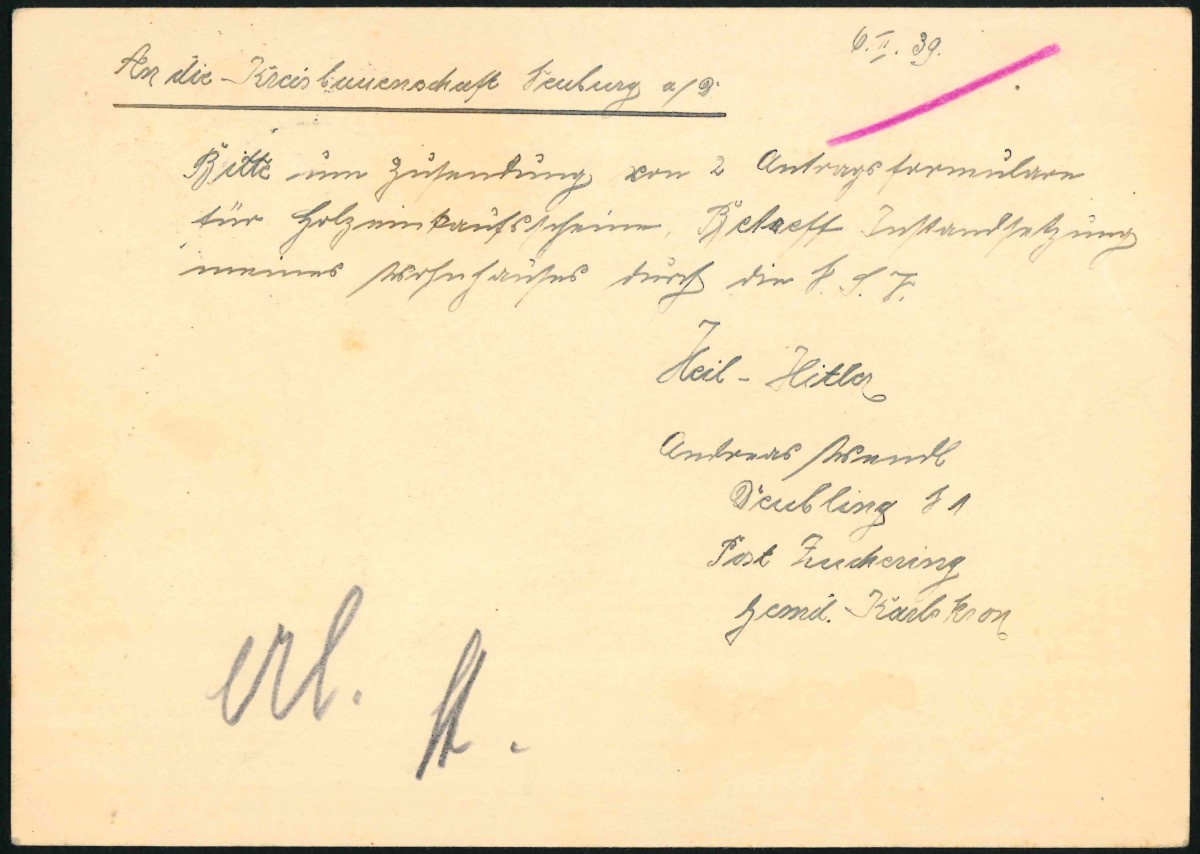 6.II.39.
An die Kreisbauernschaft Neuburg a/D.
Bitte um Zusendung von 2 Antragsformulare
für Holzeinkaufsscheine, Betreff Instandsetzung
meines Wohnhauses durch die
Heil-Hitler
Andreas Wendl
1
Post Zuchering
Gemd. Karlskron
erl.